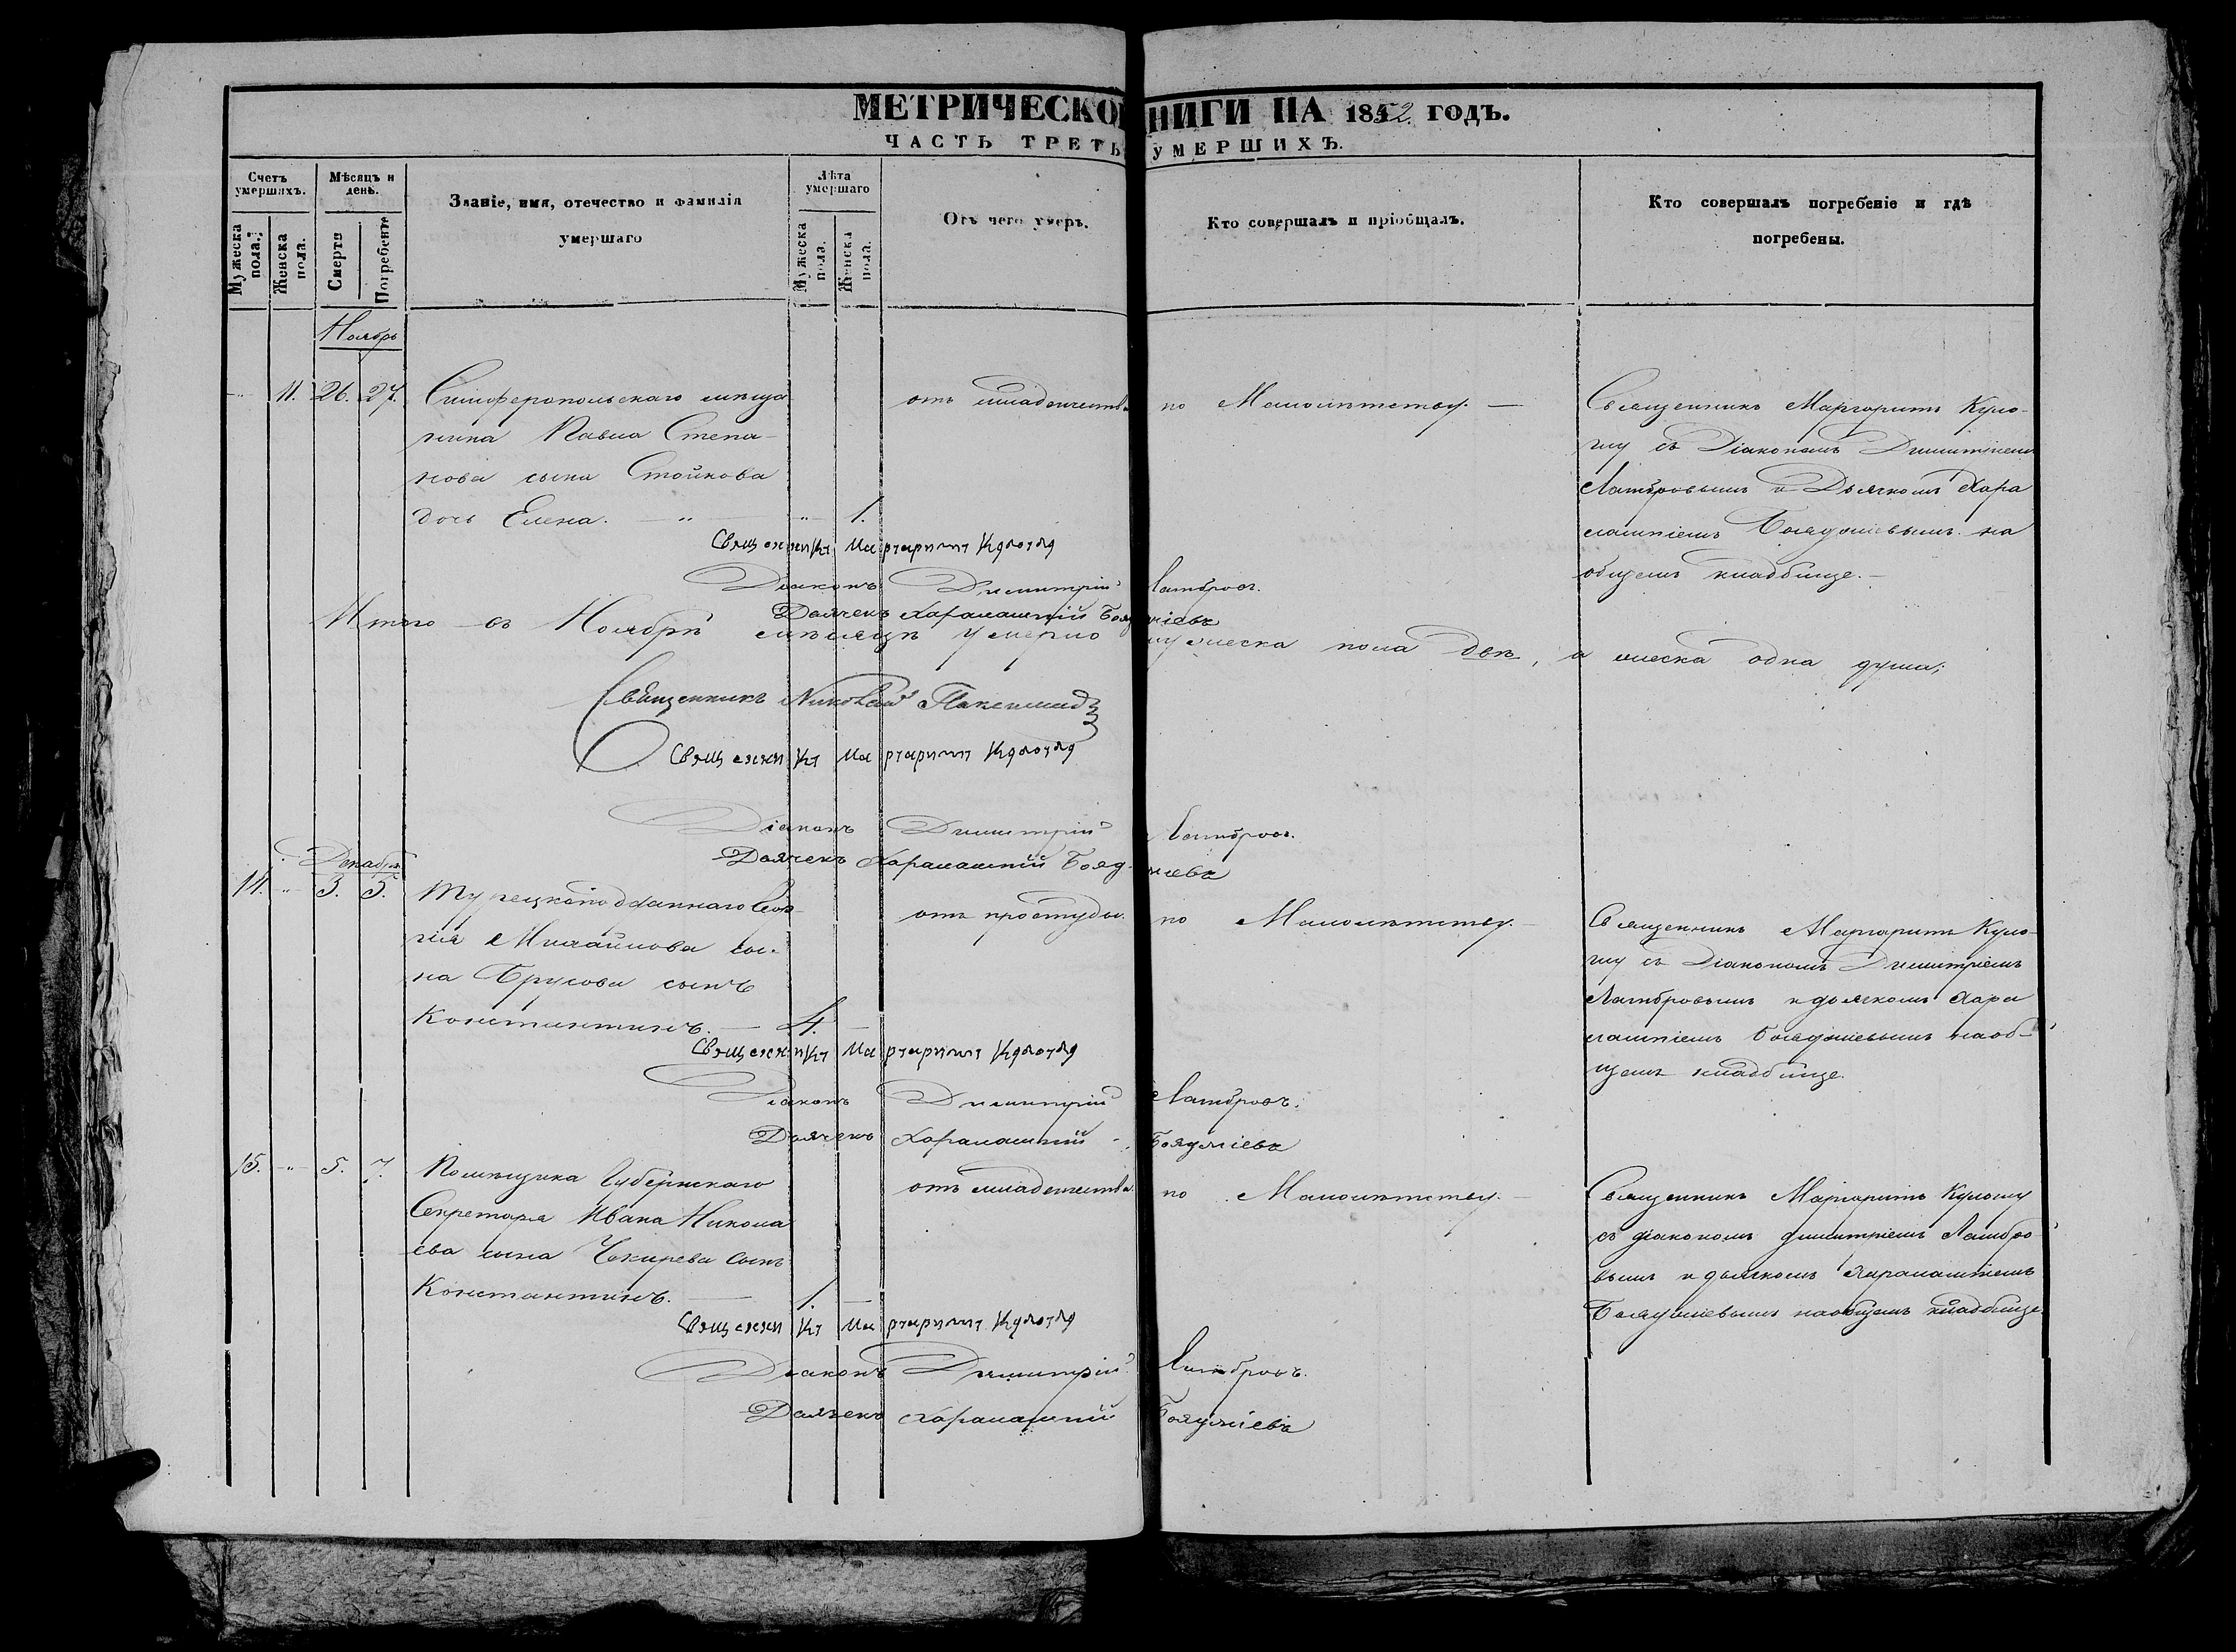 МЕТРИЧЕСКО НИГИ НА 1852. ГОДЪ.
ЧАСТЬ ТРЕТЬ УМЕРШИХЪ.
Счетъ умершихъ.
Мѣсяцъ и день.
Званіе, имя, отечество и фамилія умершаго
Лѣта умершаго
Отъ чего умеръ.
Кто совершалъ и пріобщалъ.
Кто совершалъ погребеніе и гдѣ погребены.
Мужеска пола.
Женска пола.
Смерти
Погребенія
Мужеска пола.
Женска пола.
Ноябрь
11. 26. 27. Симферопольскаго мѣща
нина Павла Степа-
нова сына Стойкова
дочь Елена. — " — " — 1.
отъ младенчества
по Малолѣтству. —
Священникъ Маргаритъ Куло-
глу съ Діакономъ Димитріемъ
Ламбровымъ и Дьячкомъ Хара
лампіемъ Бояджіевымъ на
общемъ кладбище. —
Священникъ Маргаритъ Кулоглу
Діаконъ Димитрій Ламбровъ.
Дьячекъ Харалампій Бояджіевъ
Итого въ Ноябрѣ мѣсяцѣ умерло мужеска пола двѣ, а женска одна душа;
Священникъ Николай Паксимадъ
Священникъ Маргаритъ Кулоглу
Діаконъ Димитрій Ламбровъ.
Дьячекъ Харалампій Бояджіевъ
Декабрь
14. " 3. 5. Турецкоподданнаго Геор-
гія Михайлова сы-
на Брусова сынъ
Константинъ. — 4. —
отъ простуды.
по Малолѣтству. —
Священникъ Маргаритъ Куло-
глу съ Діакономъ Димитріемъ
Ламбровымъ и дьячкомъ Хара
лампіемъ Бояджіевымъ на об-
щемъ кладбище.
Священникъ Маргаритъ Кулоглу
Діаконъ Димитрій Ламбровъ.
Дьячекъ Харалампій Бояджіевъ
15. " 5. 7. Помѣщика Губернскаго
Секретаря Ивана Никола
ева сына Чекирева сынъ
Константинъ. — 1. —
отъ младенчества.
по Малолѣтству. —
Священникъ Маргаритъ Кулоглу
съ діакономъ димитріемъ Ламбро
вымъ и дьячкомъ Харалампіемъ
Бояджіевымъ на общемъ кладбище
Священникъ Маргаритъ Кулоглу
Діаконъ Димитрій Ламбровъ.
Дьячекъ Харалампій Бояджіевъ